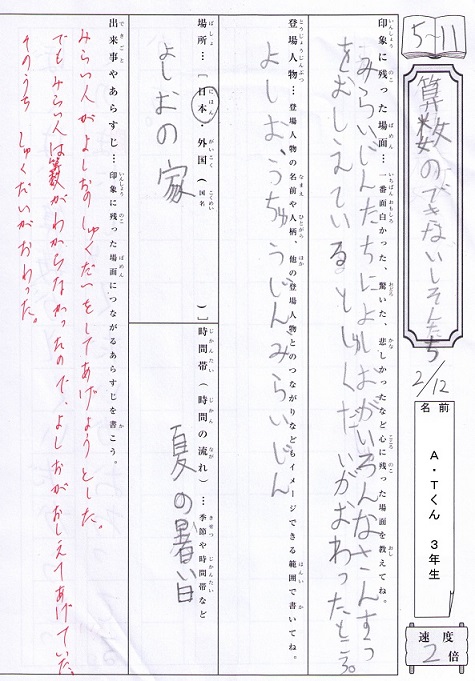 5-11
算数のできないしそんたち
2/12
名前
A・Tくん 3年生
速度
2倍
印象に残った場面…一番面白かった、驚いた、悲しかったなど心に残った場面を教えてね。
みらいじんたちによしおがいろんなさんすう
をおしえているとしゅくだいがおわったところ。
登場人物…登場人物の名前や人柄、他の登場人物とのつながりなどもイメージできる範囲で書いてね。
よしお、うちゅうじん、みらいじん
場所…〔日本・外国(国名 )〕
よしおの家
時間帯(時間の流れ)…季節や時間帯など
夏の暑い日
出来事やあらすじ…印象に残った場面につながるあらすじを書こう。
みらい人がよしおのしゅくだいをしてあげようとした。
でもみらい人は算数がわからなかったので、よしおがおしえてあげていた。
そのうちしゅくだいがおわった。